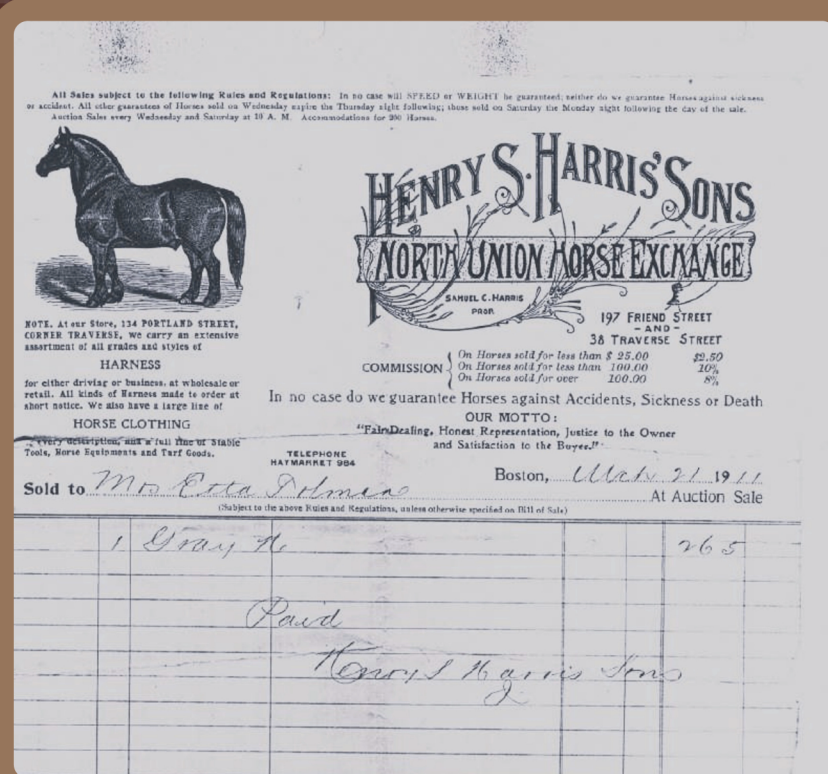 All Sales subject to the following Rules and Regulations: In no case will SPEED or WEIGHT be guaranteed; neither do we guarantee Horses against sickness
or accident. All other guarantees of Horses sold on Wednesday expire the Thursday night following; those sold on Saturday the Monday night following the day of the sale.
Auction Sales every Wednesday and Saturday at 10 A. M. Accommodations for 200 Horses.
HENRY S. HARRIS' SONS
NORTH UNION HORSE EXCHANGE
SAMUEL C. HARRIS
PROP.
197 FRIEND STREET
- AND -
38 TRAVERSE STREET
NOTE. At our Store, 134 PORTLAND STREET,
CORNER TRAVERSE, we carry an extensive
assortment of all grades and styles of
HARNESS
for either driving or business, at wholesale or
retail. All kinds of Harness made to order at
short notice. We also have a large line of
HORSE CLOTHING
every description, and a full line of Stable
Tools, Horse Equipments and Turf Goods.
COMMISSION
On Horses sold for less than $ 25.00 $2.50
On Horses sold for less than 100.00 10%
On Horses sold for over 100.00 8%
In no case do we guarantee Horses against Accidents, Sickness or Death
OUR MOTTO:
"Fair Dealing, Honest Representation, Justice to the Owner
and Satisfaction to the Buyer."
TELEPHONE
HAYMARKET 984
Boston, Mch 21 1911
Sold to Mrs Etta Tolman At Auction Sale
(Subject to the above Rules and Regulations, unless otherwise specified on Bill of Sale)
1 Gray H 265
Paid
Henry S Harris Sons